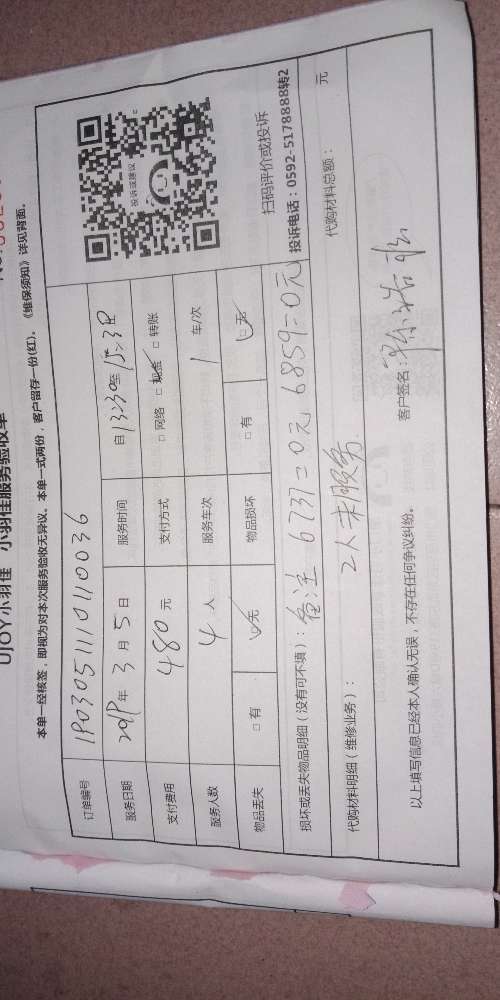 UJOY小羽佳 小羽佳服务验收单
本单一经核签，即视为对本次服务验收无异议。本单一式两份，客户留存一份(红)。《维保须知》详见背面。
订单编号 190305111010036
服务日期 2019年 3 月 5 日 服务时间 自13:30至15:30
支付费用 480 元 支付方式 □ 网络 □ 现金 □ 转账
服务人数 4 人 服务车次 1 车/次
物品丢失 □ 有 □ 无 物品损坏 □ 有 □ 无
投诉或建议
扫码评价或投诉
投诉电话：0592-5178888转2
损坏或丢失物品明细（没有可不填）：备注 6737=0元 6859=0元
代购材料明细（维修业务）： 2人未服务 代购材料总额： 元
以上填写信息已经本人确认无误，不存在任何争议纠纷。 客户签名：